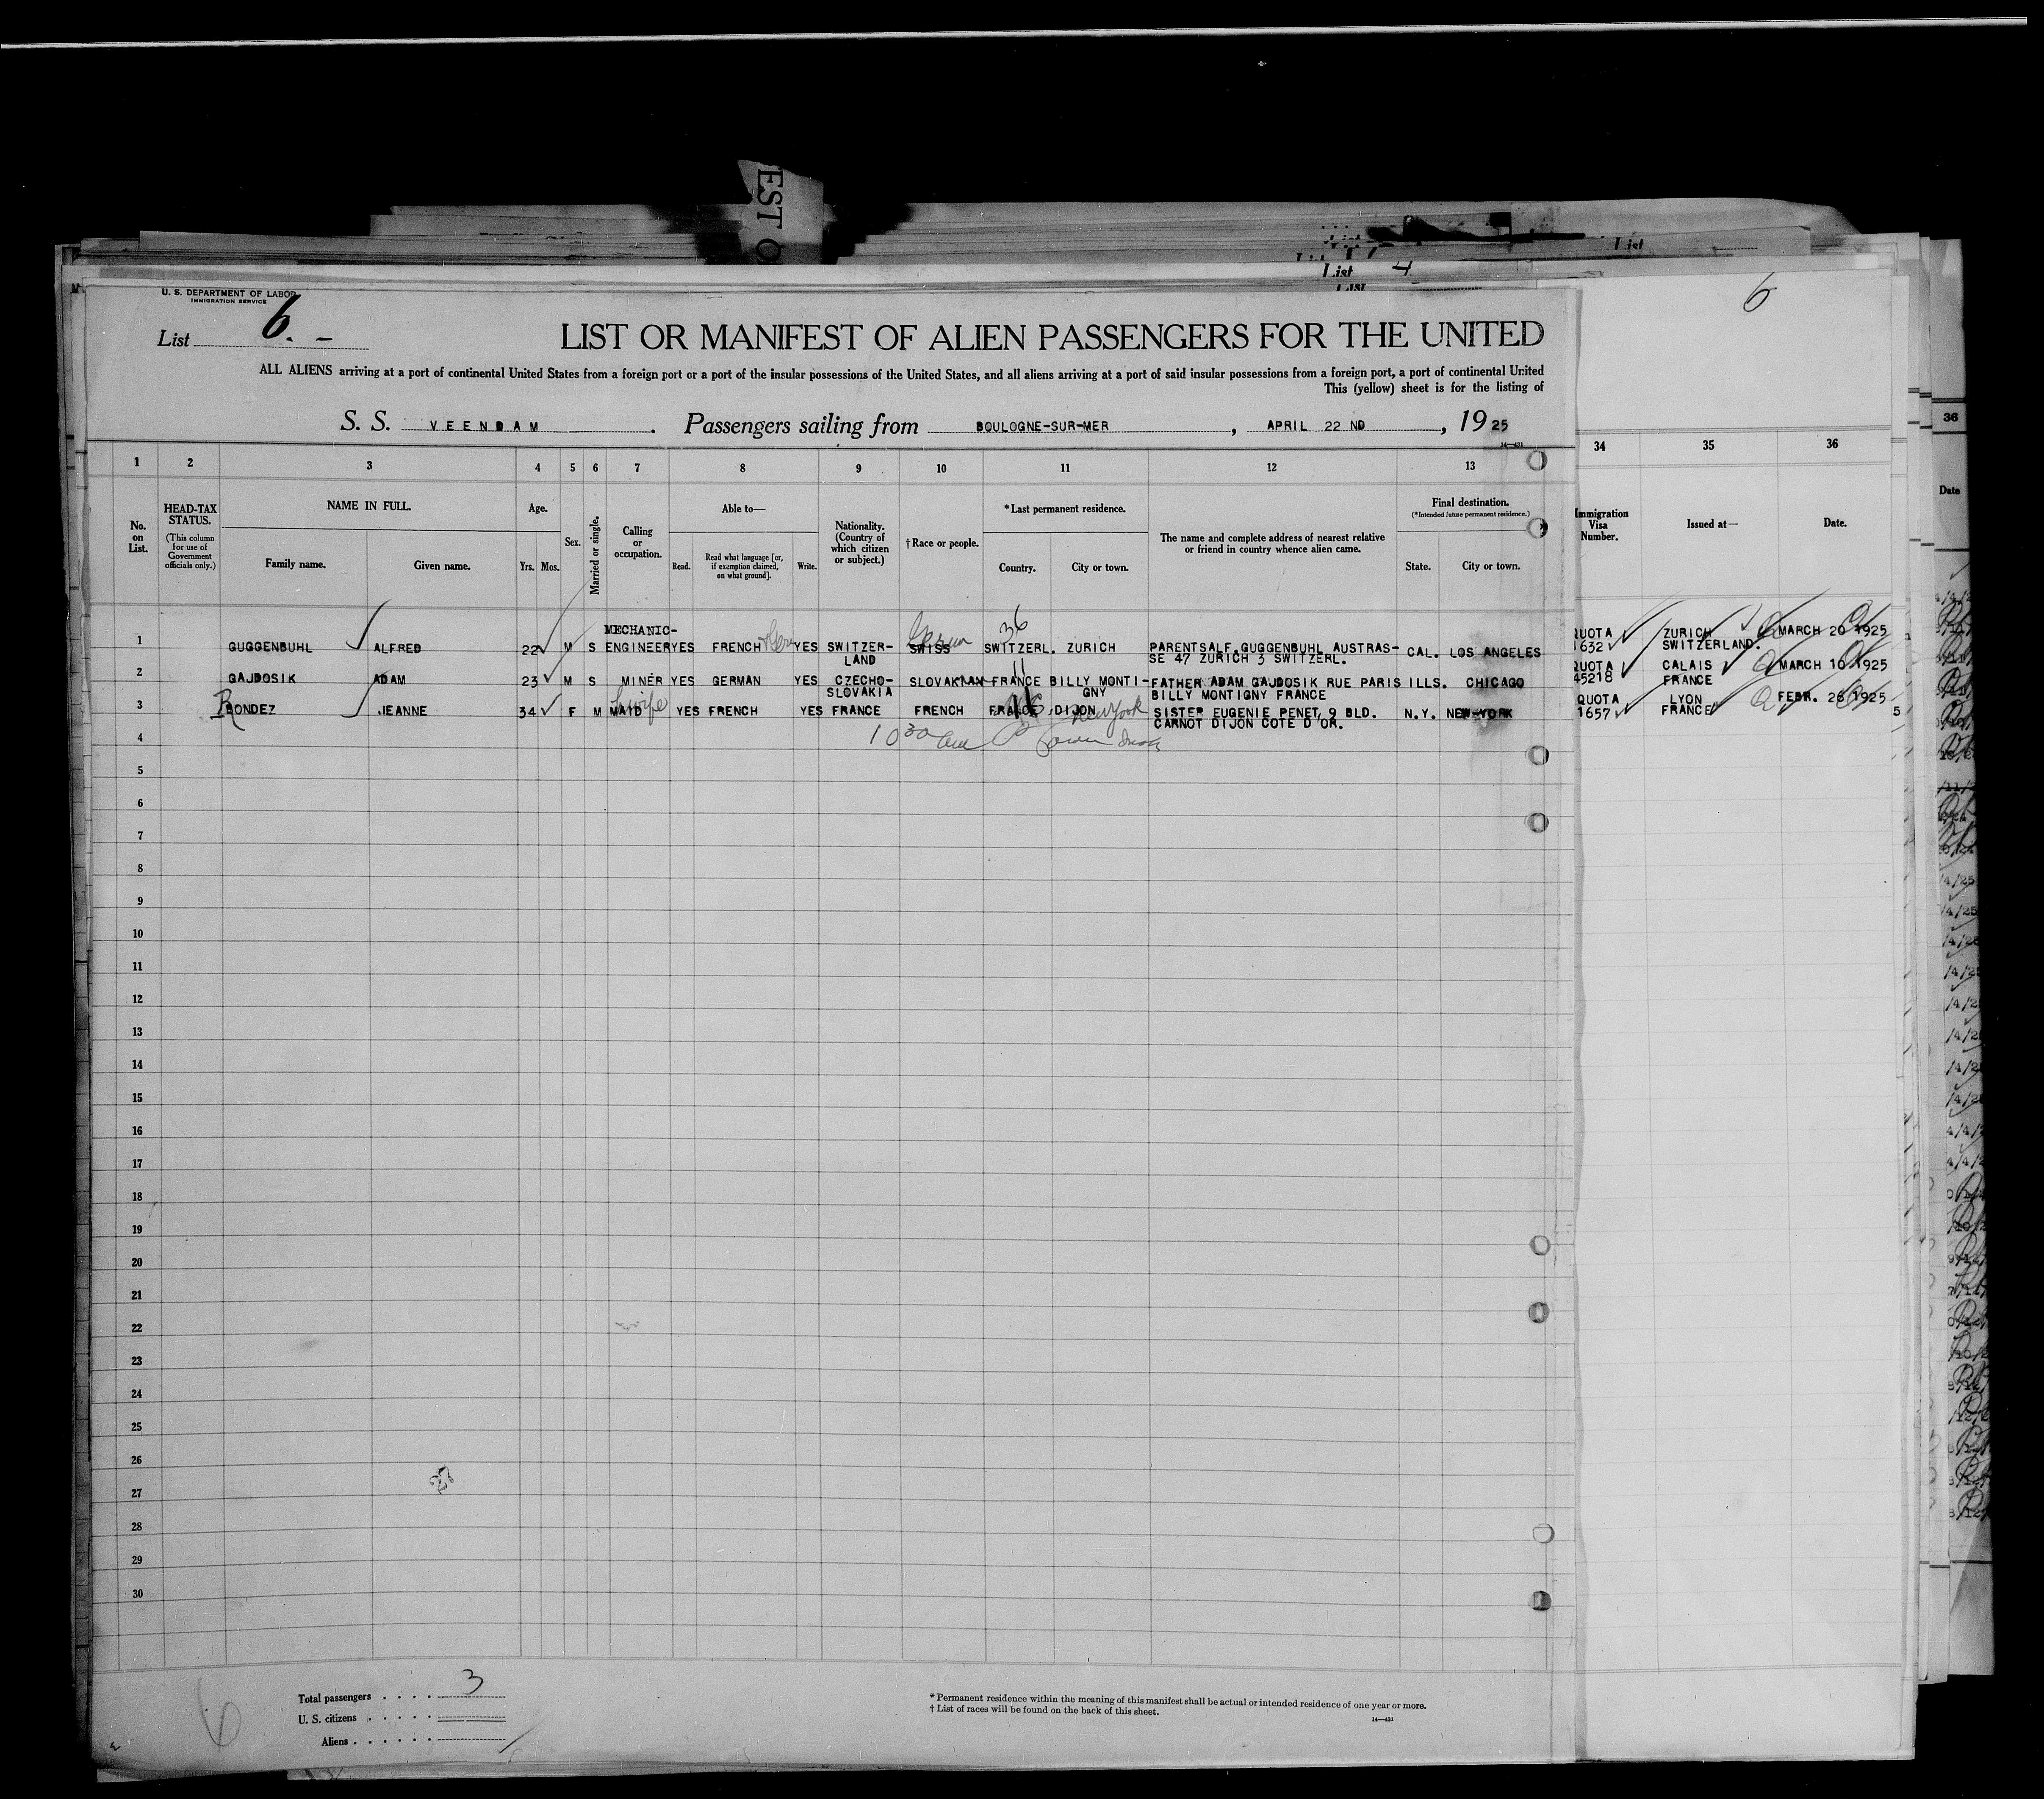 EST O
List 4
List
List
U. S. DEPARTMENT OF LABOR
IMMIGRATION SERVICE
List 6. -
6
LIST OR MANIFEST OF ALIEN PASSENGERS FOR THE UNITED
ALL ALIENS arriving at a port of continental United States from a foreign port or a port of the insular possessions of the United States, and all aliens arriving at a port of said insular possessions from a foreign port, a port of continental United
This (yellow) sheet is for the listing of
S. S. VEENDAM. Passengers sailing from BOULOGNE-SUR-MER, APRIL 22 ND, 1925
14—431
1 2 3 4 5 6 7 8 9 10 11 12 13 34 35 36
No. on List.
HEAD-TAX STATUS. (This column for use of Government officials only.)
NAME IN FULL.
Family name. Given name.
Age.
Yrs. Mos.
Sex.
Married or single.
Calling or occupation.
Able to—
Read. Read what language [or, if exemption claimed, on what ground]. Write.
Nationality. (Country of which citizen or subject.)
†Race or people.
*Last permanent residence.
Country. City or town.
The name and complete address of nearest relative or friend in country whence alien came.
Final destination.
(*Intended future permanent residence.)
State. City or town.
Immigration Visa Number.
Issued at—
Date.
36
Date
36
MECHANIC-
1 GUGGENBUHL ALFRED 22 M S ENGINEER YES FRENCH YES SWITZER- SWISS SWITZERL. ZURICH PARENTSALF.GUGGENBUHL AUSTRAS- CAL. LOS ANGELES QUOTA ZURICH MARCH 20 1925
LAND SE 47 ZURICH 3 SWITZERL. 1632 SWITZERLAND.
11
2 GAJDOSIK ADAM 23 M S MINER YES GERMAN YES CZECHO- SLOVAKIAN FRANCE BILLY MONTI- FATHER ADAM GAJDOSIK RUE PARIS ILLS. CHICAGO QUOTA CALAIS MARCH 10 1925
SLOVAKIA GNY BILLY MONTIGNY FRANCE 45218 FRANCE
wife
3 RONDEZ JEANNE 34 F M MAID YES FRENCH YES FRANCE FRENCH FRANCE DIJON New York SISTER EUGENIE PENET, 9 BLD. N.Y. NEW-YORK QUOTA LYON FEBR. 26 1925
CARNOT DIJON COTE D'OR. 1657 FRANCE 5
4 10 30 am
5
6
7
8
9
10
11
12
13
14
15
16
17
18
19
20
21
22
23
24
25
26
27
28
29
30
Total passengers . . . . 3
U. S. citizens . . . . .
Aliens . . . . . .
6
*Permanent residence within the meaning of this manifest shall be actual or intended residence of one year or more.
†List of races will be found on the back of this sheet.
14—431